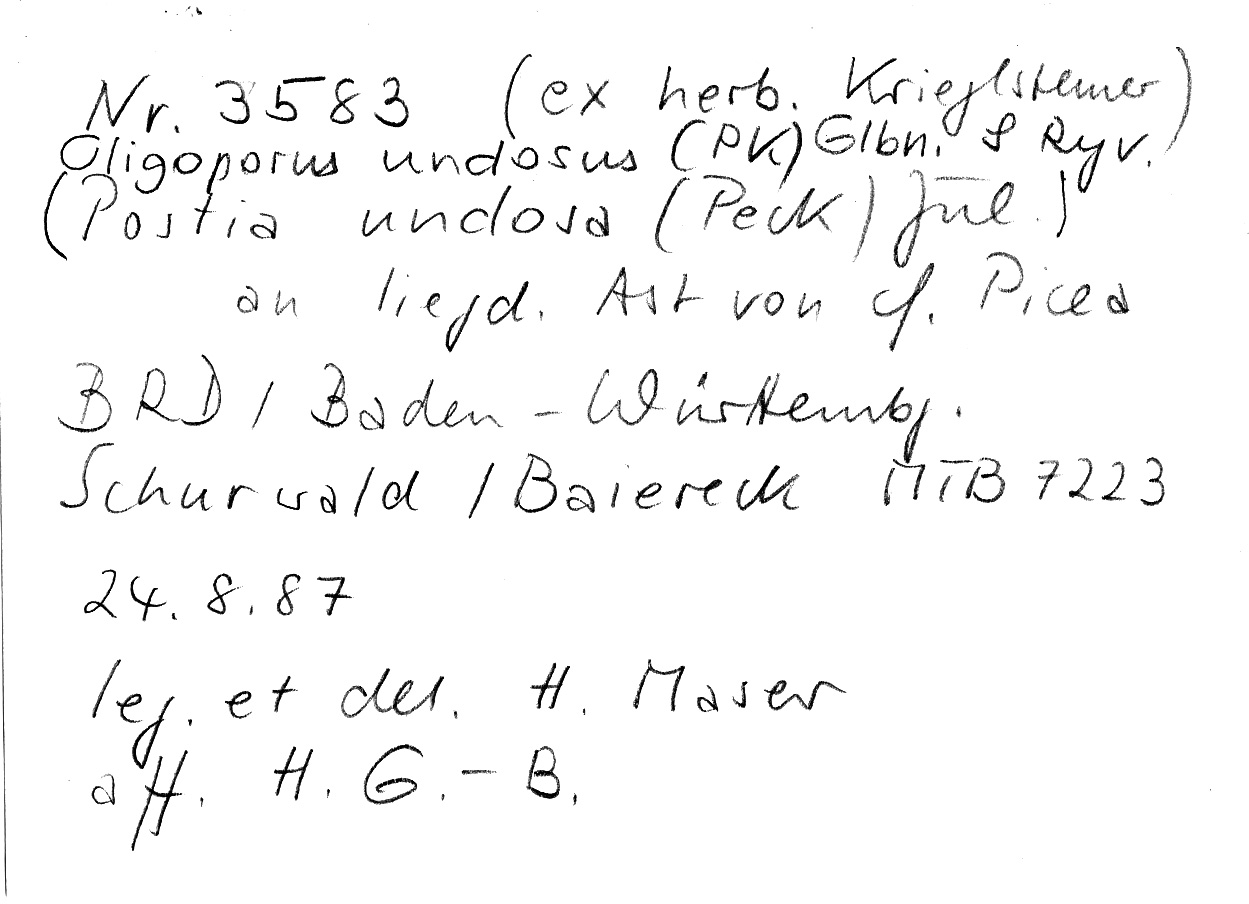 Nr. 3583 (ex herb. Krieglsteiner)
Oligoporus undosus (PK) Glbn. & Ryv.
(Postia undosa (Peck) Jül.)
an liegd. Ast von cf. Picea
BRD / Baden-Württembg.
Schurwald / Baiereck MTB 7223
24. 8. 87
leg. et det. H. Maser
aff. H. G.-B.